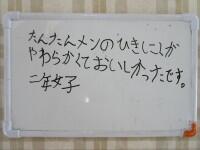 たんたんメンのひきにくが
やわらかくておいしかったです。
二年女子